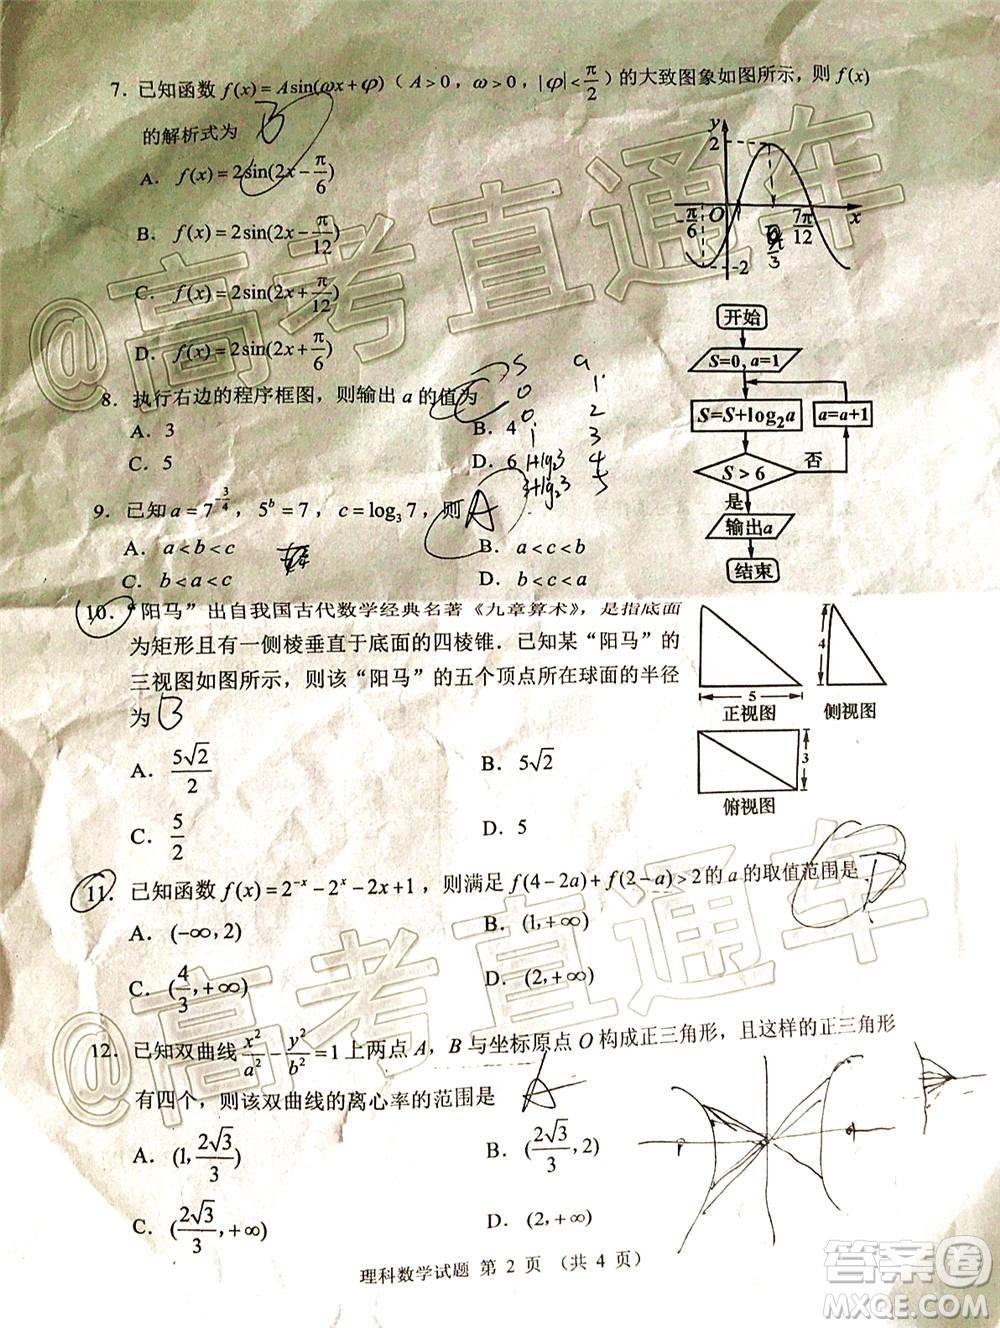 7. 已知函数 f(x)=Asin(ωx+φ)（A>0，ω>0，|φ|<π/2）的大致图象如图所示，则 f(x)
的解析式为 B
A. f(x)=2sin(2x-π/6)
B. f(x)=2sin(2x-π/12)
C. f(x)=2sin(2x+π/12)
D. f(x)=2sin(2x+π/6)
y
2
-π/6
O
π/3
7π/12
x
-2
8. 执行右边的程序框图，则输出 a 的值为
A. 3
B. 4
C. 5
D. 6
S a
0 1
0 2
1 3
1+log₂3 4
3+log₂3 5
开始
S=0, a=1
S=S+log₂a
a=a+1
S>6
否
是
输出a
结束
9. 已知 a=7^(-3/4)，5^b=7，c=log₃7，则 A
A. a<b<c
B. a<c<b
C. b<a<c
D. b<c<a
10. “阳马”出自我国古代数学经典名著《九章算术》，是指底面
为矩形且有一侧棱垂直于底面的四棱锥．已知某“阳马”的
三视图如图所示，则该“阳马”的五个顶点所在球面的半径
为 B
A. 5√2/2
B. 5√2
C. 5/2
D. 5
5
正视图
4
侧视图
3
俯视图
11. 已知函数 f(x)=2^(-x)-2^x-2x+1，则满足 f(4-2a)+f(2-a)>2 的 a 的取值范围是 D
A. (-∞, 2)
B. (1, +∞)
C. (4/3, +∞)
D. (2, +∞)
12. 已知双曲线 x²/a²-y²/b²=1 上两点 A，B 与坐标原点 O 构成正三角形，且这样的正三角形
有四个，则该双曲线的离心率的范围是 A
A. (1, 2√3/3)
B. (2√3/3, 2)
C. (2√3/3, +∞)
D. (2, +∞)
理科数学试题 第 2 页 （共 4 页）
@高考直通车
@高考直通车
答案圈
MXQE.COM